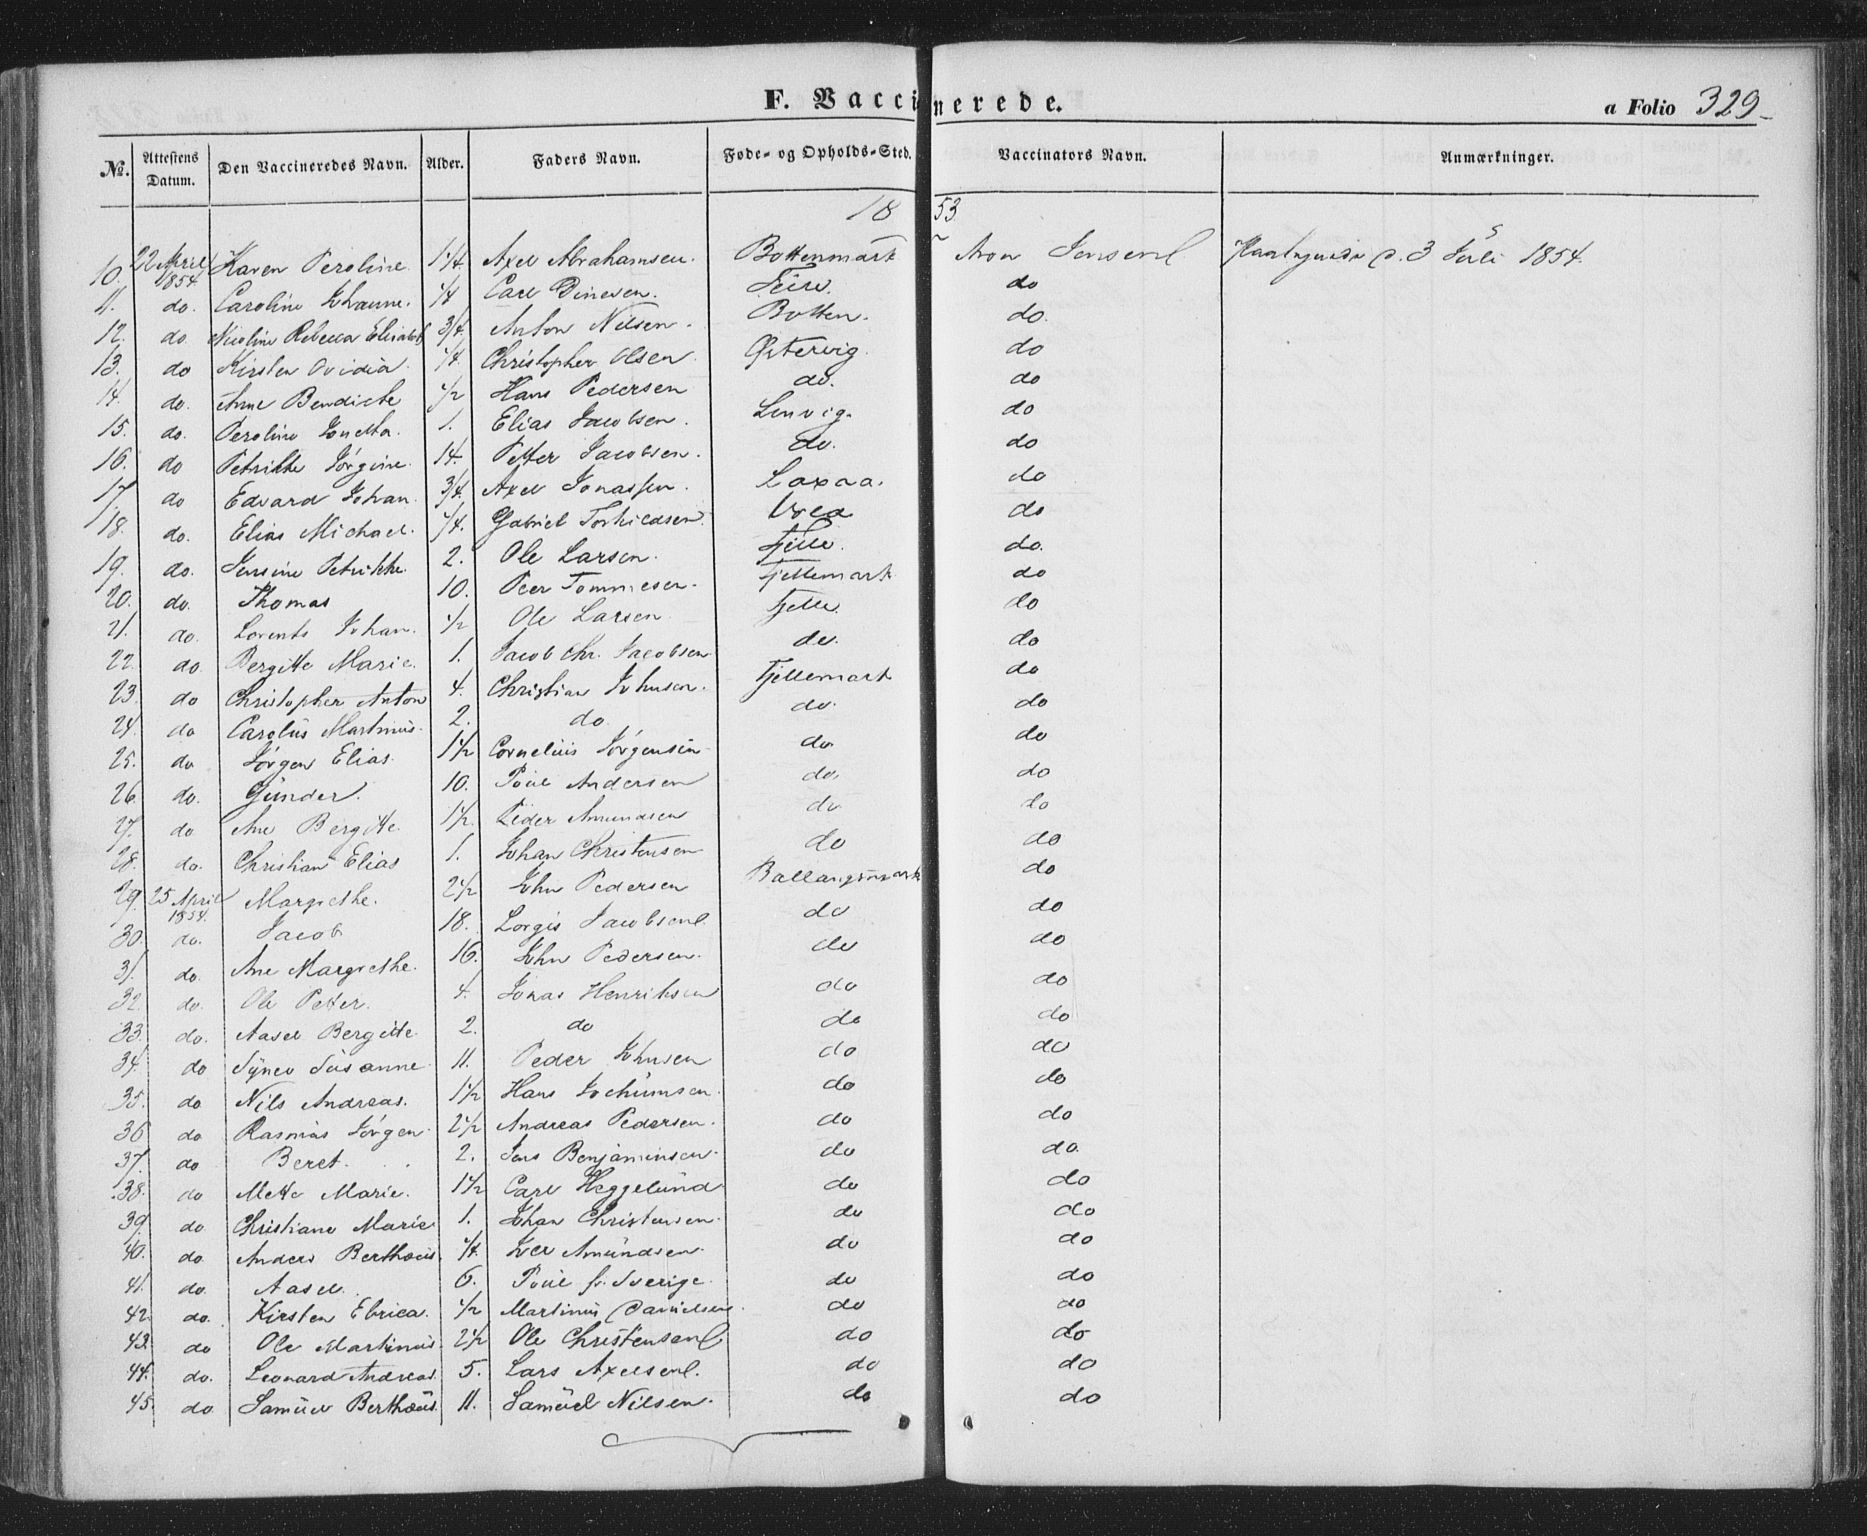 F. Vaccinerede.
a Folio 329
No. Attestens Datum. Den Vaccineredes Navn. Alder. Faders Navn. Føde- og Opholds-Sted. Vaccinators Navn. Anmærkninger.
1853
10. 22 April 1854. Karen Peroline 1 1/4. Axel Abrahamsen. Bottenmark Aron Jensen 3 Juli 1854.
11. do. Caroline Johanne. 1/4 Carl Dinesen. do
12. do Nicoline Rebecca Elisabeth 3/4. Anton Nilsen. Botten. do.
13. do Kirsten Ovidia. 1/4. Christopher Olsen. Østervig. do
14. do. Anne Bendicte 1/2 Hans Pedersen do. do
15. do. Peroline 1. Elias Jacobsen. Lenvig. do
16. do Petrikke Jørgine. 14. Petter Jacobsen. do. do
17. do Edvard Johan. 3/4. Axel Jonassen. Laxaa. do
18. do. Elias Michael. 1/4. Gabriel Torkildsen. do
19. do. Jensine Petrikke. 2. Ole Larsen. Fjelle. do.
20. do. Thomas 10. Peer Tommesen. Fjellemark do
21. do. Lorents Johan. 1/2 Ole Larsen Fjelle. do
22. do Bergitte Marie. 1. Jacob Chr. Jacobsen do. do
23. do Christopher Anton 4. Christian Johnsen. Fjellemark do
24. do Carolus Martinus. 2. do do. do
25. do Jørgen Elias. 1 1/2 Cornelius Jørgensen do. do
26. do. Gunder. 10. Poul Andersen do. do
27. do Ane Bergitte 1 1/2. Peder Amundsen do do
28. do. Christian Elias 1. Johan Christensen do do
29. 25 April 1854. Margrethe. 2 1/2 John Pedersen Ballangsmark do
30. do. Jacob 18. Jacobsen do do
31. do. Ane Margrethe. 16. John Pedersen. do do
32. do. Ole Petter. 4. Jonas Henriksen do do
33. do. Aasel Bergitte 2. do do do
34. do Synev Susanne 11. Peder Johnsen do do
35. do Nils Andreas. 1 1/2 Hans Jochumsen. do do
36 do Rasmus Jørgen. 2 1/2 Andreas Pedersen. do do
37. do Beret. 2. Jens Benjaminsen. do do.
38. do Mette Marie. 1 1/2 Carl Heggelund do do
39. do Christiane Marie 1. Johan Christensen. do do
40. do. Anders Berthæus. 1/4. Iver Amundsen. do do
41. do. Aasel. 6. Poul fr. Sverige. do do
42. do. Kirsten Ebrica. 1/2 Martinus Danielsen. do do
43. do Ole Martinus. 2 1/2 Ole Christensen do do
44. do. Leonard Andreas. 5. Lars Axelsen. do do
45. do Samuel Berthæus. 11. Samuel Nilsen. do do